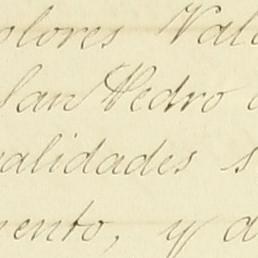 olores Val
San Pedro
alidades s
ento, y d